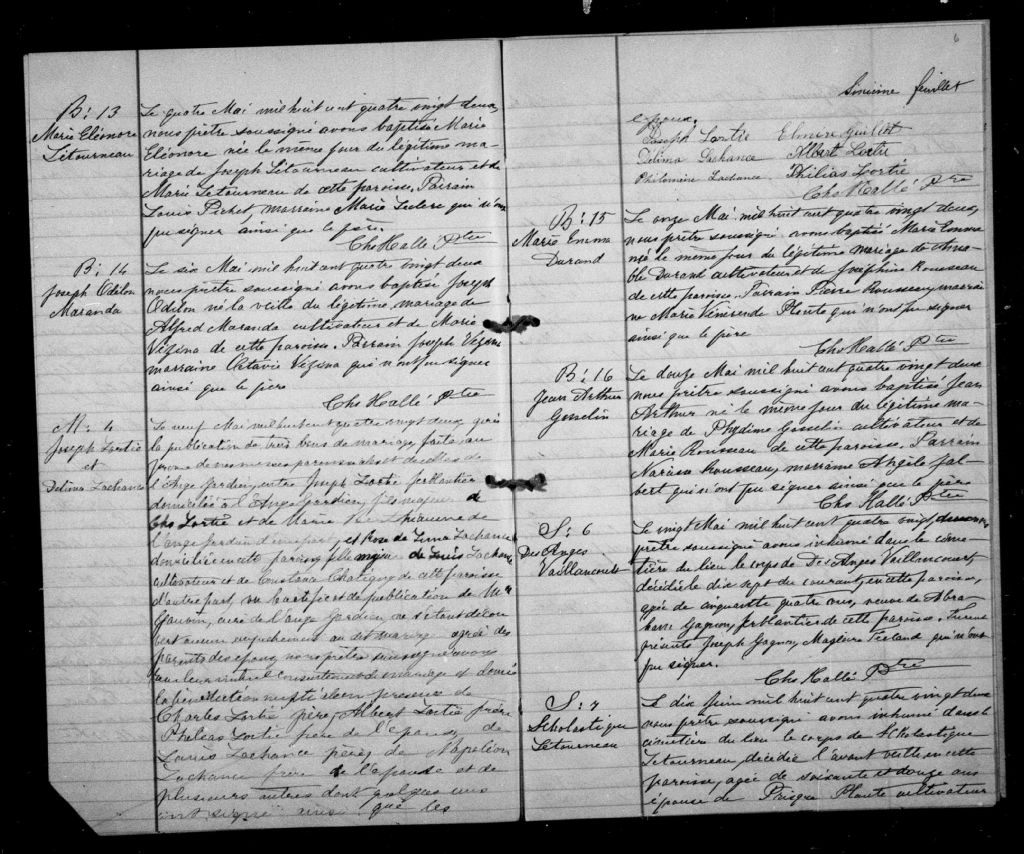 B: 13
Marie Eléonore
Létourneau
Le quatre Mai mil huit cent quatre vingt deux,
nous prêtre soussigné avons baptisé Marie
Eléonore née le même jour du légitime ma-
riage de Joseph Létourneau cultivateur et de
Marie Letourneau de cette paroisse, Parrain
Louis Pichet, marraine Marie Leclerc qui n'ont
pu signer ainsi que le père.
Chs Hallé Ptre
B: 14
Joseph Odilon
Maranda
Le six Mai mil huit cent quatre vingt deux
nous prêtre soussigné avons baptisé Joseph
Odilon né la veille du légitime mariage de
Alfred Maranda cultivateur et de Marie
Vézina de cette paroisse. Parrain Joseph Vézina
marraine Octavie Vézina qui n'ont pu signer
ainsi que le père
Chs Hallé Ptre
M: 4
Joseph Lortie
et
Delima Lachance
Le neuf Mai mil huit cent quatre vingt deux après
la publication de trois bans de mariage faite au
prone de nos messes paroissiales et de celles de
l'Ange Gardien, entre Joseph Lortie ferblantier
domicilié à l'Ange Gardien, fils majeur de
Chs Lortie et de Marie
l'ange Gardien d'une part, et Rose de Lima Lachance
domiciliée en cette paroisse fille mineure de Louis Lachance
cultivateur et de Constance Chatigny de cette paroisse
d'autre part, vu le certificat de publication de Mr
Gauvin, curé de l'ange Gardien, ne s'étant décou-
vert aucun empêchement au dit mariage agréé des
parents des époux nous prêtre soussigné avons
reçu leur mutuel consentement de mariage et donné
la bénédiction nuptiale en presence de
Charles Lortie père, Albert Lortie frère
Philias Lortie frère de l'époux, de
Louis Lachance père, de Napoléon
Lachance frère de l'épouse et de
plusieurs autres dont quelques uns
ont signé avec que les
6
Sixième feuillet
époux.
Joseph Lortie Elmire Guillot
Delima Lachance Albert Lortie
Philomène Lachance Philias Lortie
Chs Hallé Ptre
B: 15
Marie Emma
Durand
Le onze Mai mil huit cent quatre vingt deux,
nous prêtre soussigné avons baptisé Marie Emma
née le même jour du légitime mariage de
Durand cultivateur et de Joséphine Rousseau
de cette paroisse. Parrain Pierre Rousseau, marrai-
ne Marie Vénérende Plante qui n'ont pu signer
ainsi que le père
Chs Hallé Ptre
B: 16
Jean Arthur
Gosselin
Le douze Mai mil huit cent quatre vingt deux
nous prêtre soussigné avons baptisé Jean
Arthur né le même jour du légitime ma-
riage de Phydime Gosselin cultivateur et de
Marie Rousseau de cette paroisse. Parrain
Narcisse Rousseau, marraine Angèle Jal-
bert qui n'ont pu signer ainsi que le père
Chs Hallé Ptre
S: 6
Des Anges
Vaillancourt
Le vingt Mai mil huit cent quatre vingt deux nous
prêtre soussigné avons inhumé dans le cime-
tière du lieu le corps de Des Anges Vaillancourt,
décédée le dix sept du courant, en cette paroisse,
agée de cinquante quatre ans, veuve de Abra-
ham Gagnon, ferblantier de cette paroisse. Furent
présents Joseph Gagnon, Magloire Ferland qui n'ont
pu signer.
Chs Hallé Ptre
S: 7
Scholastique
Létourneau
Le dix juin mil huit cent quatre vingt deux
nous prêtre soussigné avons inhumé dans le
cimetière du lieu le corps de Scholastique
Létourneau, décédée l'avant veille en cette
paroisse, agée de soixante et douze ans
épouse de Prisque Plante cultivateur